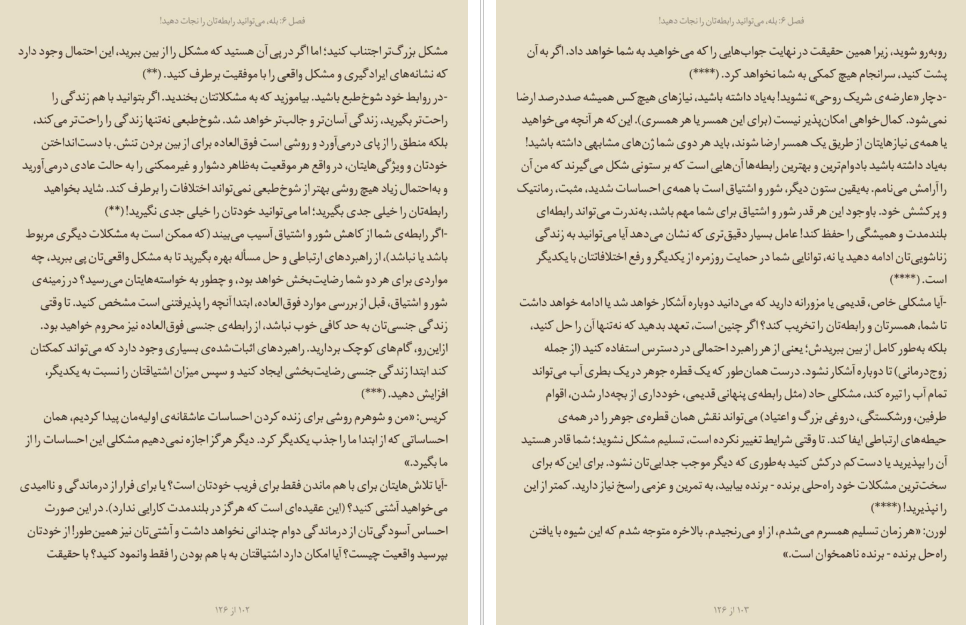 فصل ۶: بله، می‌توانید رابطه‌تان را نجات دهید!
مشکل بزرگ‌تر اجتناب کنید؛ اما اگر در پی آن هستید که مشکل را از بین ببرید، این احتمال وجود دارد
که نشانه‌های ایرادگیری و مشکل واقعی را با موفقیت برطرف کنید. (**)
-در روابط خود شوخ‌طبع باشید. بیاموزید که به مشکلاتتان بخندید. اگر بتوانید با هم زندگی را
راحت‌تر بگیرید، زندگی آسان‌تر و جالب‌تر خواهد شد. شوخ‌طبعی نه‌تنها زندگی را راحت‌تر می‌کند،
بلکه منطق را از پای درمی‌آورد و روشی است فوق‌العاده برای از بین بردن تنش. با دست‌انداختن
خودتان و ویژگی‌هایتان، در واقع هر موقعیت به‌ظاهر دشوار و غیرممکنی را به حالت عادی درمی‌آورید
و به‌احتمال زیاد هیچ روشی بهتر از شوخ‌طبعی نمی‌تواند اختلافات را برطرف کند. شاید بخواهید
رابطه‌تان را خیلی جدی بگیرید؛ اما می‌توانید خودتان را خیلی جدی نگیرید! (**)
-اگر رابطه‌ی شما از کاهش شور و اشتیاق آسیب می‌بیند (که ممکن است به مشکلات دیگری مربوط
باشد یا نباشد)، از راهبردهای ارتباطی و حل مسأله بهره بگیرید تا به مشکل واقعی‌تان پی ببرید، چه
مواردی برای هر دو شما رضایت‌بخش خواهد بود، و چطور به خواسته‌هایتان می‌رسید؟ در زمینه‌ی
شور و اشتیاق، قبل از بررسی موارد فوق‌العاده، ابتدا آنچه را پذیرفتنی است مشخص کنید. تا وقتی
زندگی جنسی‌تان به حد کافی خوب نباشد، از رابطه‌ی جنسی فوق‌العاده نیز محروم خواهید بود.
ازاین‌رو، گام‌های کوچک بردارید. راهبردهای اثبات‌شده‌ی بسیاری وجود دارد که می‌تواند کمکتان
کند ابتدا زندگی جنسی رضایت‌بخشی ایجاد کنید و سپس میزان اشتیاقتان را نسبت به یکدیگر،
افزایش دهید. (***)
کریس: «من و شوهرم روشی برای زنده کردن احساسات عاشقانه‌ی اولیه‌مان پیدا کردیم، همان
احساساتی که از ابتدا ما را جذب یکدیگر کرد. دیگر هرگز اجازه نمی‌دهیم مشکلی این احساسات را از
ما بگیرد.»
-آیا تلاش‌هایتان برای با هم ماندن فقط برای فریب خودتان است؟ یا برای فرار از درماندگی و ناامیدی
می‌خواهید آشتی کنید؟ (این عقیده‌ای است که هرگز در بلندمدت کارایی ندارد). در این صورت
احساس آسودگی‌تان از درماندگی دوام چندانی نخواهد داشت و آشتی‌تان نیز همین‌طور! از خودتان
بپرسید واقعیت چیست؟ آیا امکان دارد اشتیاقتان به با هم بودن را فقط وانمود کنید؟ با حقیقت
۱۰۲ از ۱۲۶
فصل ۶: بله، می‌توانید رابطه‌تان را نجات دهید!
روبه‌رو شوید، زیرا همین حقیقت در نهایت جواب‌هایی را که می‌خواهید به شما خواهد داد. اگر به آن
پشت کنید، سرانجام هیچ کمکی به شما نخواهد کرد. (****)
-دچار «عارضه‌ی شریک روحی» نشوید! به‌یاد داشته باشید، نیازهای هیچ‌کس همیشه صددرصد ارضا
نمی‌شود. کمال‌خواهی امکان‌پذیر نیست (برای این همسر یا هر همسری). این‌که هر آنچه می‌خواهید
یا همه‌ی نیازهایتان از طریق یک همسر ارضا شوند، باید هر دوی شما ژن‌های مشابهی داشته باشید!
به‌یاد داشته باشید بادوام‌ترین و بهترین رابطه‌ها آن‌هایی است که بر ستونی شکل می‌گیرند که من آن
را آرامش می‌نامم. به‌یقین ستون دیگر، شور و اشتیاق است با همه‌ی احساسات شدید، مثبت، رمانتیک
و پرکشش خود. باوجود این هر قدر شور و اشتیاق برای شما مهم باشد، به‌ندرت می‌تواند رابطه‌ای
بلندمدت و همیشگی را حفظ کند! عامل بسیار دقیق‌تری که نشان می‌دهد آیا می‌توانید به زندگی
زناشویی‌تان ادامه دهید یا نه، توانایی شما در حمایت روزمره از یکدیگر و رفع اختلافاتتان با یکدیگر
است. (****)
-آیا مشکلی خاص، قدیمی یا مزورانه دارید که می‌دانید دوباره آشکار خواهد شد یا ادامه خواهد داشت
تا شما، همسرتان و رابطه‌تان را تخریب کند؟ اگر چنین است، تعهد بدهید که نه‌تنها آن را حل کنید،
بلکه به‌طور کامل از بین ببریدش؛ یعنی از هر راهبرد احتمالی در دسترس استفاده کنید (از جمله
زوج‌درمانی) تا دوباره آشکار نشود. درست همان‌طور که یک قطره جوهر در یک بطری آب می‌تواند
تمام آب را تیره کند، مشکلی حاد (مثل رابطه‌ی پنهانی قدیمی، خودداری از بچه‌دار شدن، اقوام
طرفین، ورشکستگی، دروغی بزرگ و اعتیاد) می‌تواند نقش همان قطره‌ی جوهر را در همه‌ی
حیطه‌های ارتباطی ایفا کند. تا وقتی شرایط تغییر نکرده است، تسلیم مشکل نشوید؛ شما قادر هستید
آن را بپذیرید یا دست‌کم درکش کنید به‌طوری که دیگر موجب جدایی‌تان نشود. برای این‌که برای
سخت‌ترین مشکلات خود راه‌حلی برنده - برنده بیابید، به تمرین و عزمی راسخ نیاز دارید. کمتر از این
را نپذیرید! (****)
لورن: «هر زمان تسلیم همسرم می‌شدم، از او می‌رنجیدم. بالاخره متوجه شدم که این شیوه با یافتن
راه‌حل برنده - برنده ناهمخوان است.»
۱۰۳ از ۱۲۶